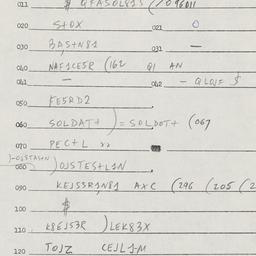 011 $ QFASOL81J (/0 96011
020 S+OX 021 O
030 3AS+N81 031 —
040 NAF1CE5R (162 Q1 AN
041 — 042 - QLQJF $
050 FE5RD2
060 SOLDAT+ ) = SOLDOT+ (067
070 PEC+L »
080 )-OJSTA5UN )OJSTES+L1N
090 KEJSSR1N81 AXC (296 (205 (2
100 $
110 K8EJ53R )LEK83X
120 TOJZ CEJL1-M